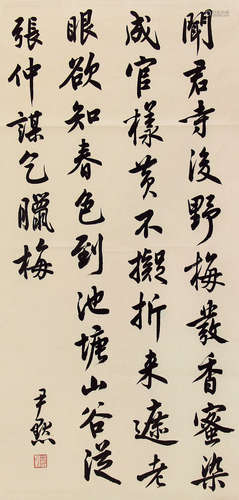 聞君寺後野梅發香蜜染
成官樣黃不擬折來遮老
眼欲知春色到池塘山谷從
張仲謀乞臘梅
尹默